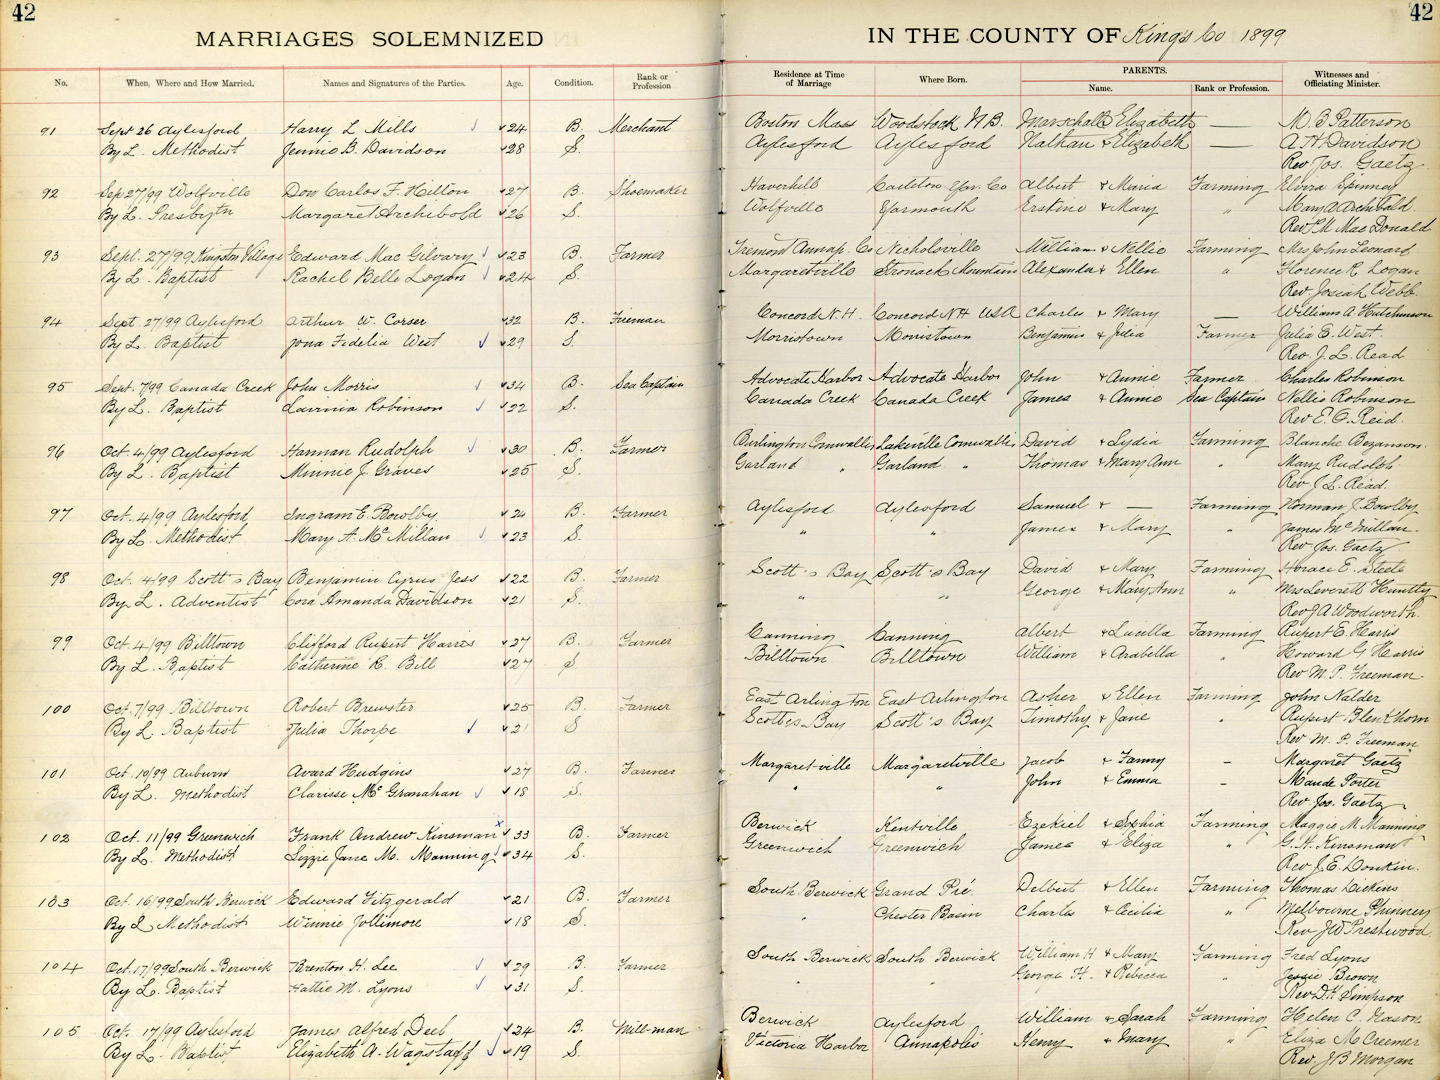 42
42
MARRIAGES SOLEMNIZED IN THE COUNTY OF Kings Co 1899
No. When, Where and How Married. Names and Signatures of the Parties. Age. Condition. Rank or Profession Residence at Time of Marriage Where Born. PARENTS. Name. Rank or Profession. Witnesses and Officiating Minister.
91 Sept 26 Aylesford Harry L Mills 24 B. Merchant Boston Mass Woodstock N.B. Marschall & Elizabeth — M. B Patterson
By L. Methodist Jennie B. Davidson 28 S. Aylesford Aylesford Nathan & Elizabeth — A H Davidson
Rev Jos. Gaetz
92 Sep 27/99 Wolfville Don Carlos F. Hilton 27 B. Shoemaker Haverhill Carleton Yar. Co Albert & Maria Farming Elvira Spinney
By L. Presbytn Margaret Archibold 26 S. Wolfville Yarmouth Erstine & Mary " Mary A Archibald
Rev P.M MacDonald
93 Sept. 27/99 Kingston Village Edward Mac Gilvary 23 B. Farmer Tremont Annap. Co Nicholsville William & Nellie Farming Mrs John Leonard
By L. Baptist Rachel Belle Logan 24 S. Margaretville Stronack Mountain Alexander & Ellen " Florence E Logan
Rev Josiah Webb
94 Sept 27/99 Aylesford Arthur W. Corser 32 B. Fireman Concord N.H. Concord N.H USA Charles & Mary — William A Hutchinson
By L. Baptist Iona Fidelia West 29 S. Morristown Morristown Benjamin & Julia Farmer Julia E. West
Rev. J. L. Read
95 Sept. 7/99 Canada Creek John Morris 34 B. Sea Captain Advocate Harbor Advocate Harbor John & Annie Farmer Charles Robinson
By L. Baptist Lavinia Robinson 22 S. Canada Creek Canada Creek James & Annie Sea Captain Nellie Robinson
Rev E. O. Reid.
96 Oct. 4/99 Aylesford Harman Rudolph 30 B. Farmer Burlington Cornwallis Lakeville Cornwallis David & Lydia Farming Blanche Bezanson
By L. Baptist Minnie J. Graves 25 S. Garland " Garland " Thomas & Mary Ann " Mary Rudolph
Rev J. L. Read.
97 Oct. 4/99 Aylesford Ingram E. Bowlby 24 B. Farmer Aylesford Aylesford Samuel & — Farming Norman J. Bowlby
By L. Methodist Mary A. McMillan 23 S. " " James & Mary " James McMillan
Rev Jos. Gaetz
98 Oct. 4/99 Scott's Bay Benjamin Cyrus Jess 22 B. Farmer Scott's Bay Scott's Bay David & Mary Farming Horace E. Steele
By L. Adventist Cora Amanda Davidson 21 S. " " George & Mary Ann " Mrs Leverett Huntly
Rev J A Woodworth
99 Oct 4/99 Billtown Clifford Rupert Harris 27 B. Farmer Canning Canning Albert & Luella Farming Rupert E. Harris
By L. Baptist Catherine R. Bill 27 S. Billtown Billtown William & Arabella " Howard G Harris
Rev M. P. Freeman
100 Oct 7/99 Billtown Robert Brewster 25 B. Farmer East Arlington East Arlington Asher & Ellen Farming John Nalder
By L Baptist Julia Thorpe 21 S Scott's Bay Scott's Bay Timothy & Jane " Rupert Blenkhorn
Rev M. P. Freeman
101 Oct. 10/99 Auburn Avard Hudgins 27 B. Farmer Margaret-ville Margaretville Jacob & Fanny - Margaret Gaetz
By L. Methodist Clarisse McGranahan 18 S. " " John & Emma - Maude Porter
Rev. Jos. Gaetz
102 Oct. 11/99 Greenwich Frank Andrew Kinsman x 33 B. Farmer Berwick Kentville Ezekiel & Sophia Farming Maggie M Manning
By L. Methodist Lizzie Jane M. Manning 34 S. Greenwich Greenwich James & Eliza " G. H. Kinsman
Rev J. E. Donkin.
103 Oct. 16/99 South Berwick Edward Fitzgerald 21 B. Farmer South Berwick Grand Pré Delbert & Ellen Farming Thomas Dickins
By L Methodist Winnie Jollimore 18 S. " Chester Basin Charles & Cecilia " Melbourne Phinney
Rev JW Prestwood
104 Oct. 17/99 South Berwick Brenton H. Lee 29 B. Farmer South Berwick South Berwick William H & Mary Farming Fred Lyons
By L. Baptist Hattie M. Lyons 31 S. " " George H. & Rebecca " Jessie Brown
Rev D.H Simpson
105 Oct. 17/99 Aylesford James Alfred Deel 24 B. Mill-man Berwick Aylesford William & Sarah Farming Helen C. Nason
By L. Baptist Elizabeth A. Wagstaff 19 S. Victoria Harbor Annapolis Henry & Mary " Eliza McCreemer
Rev. J B Morgan